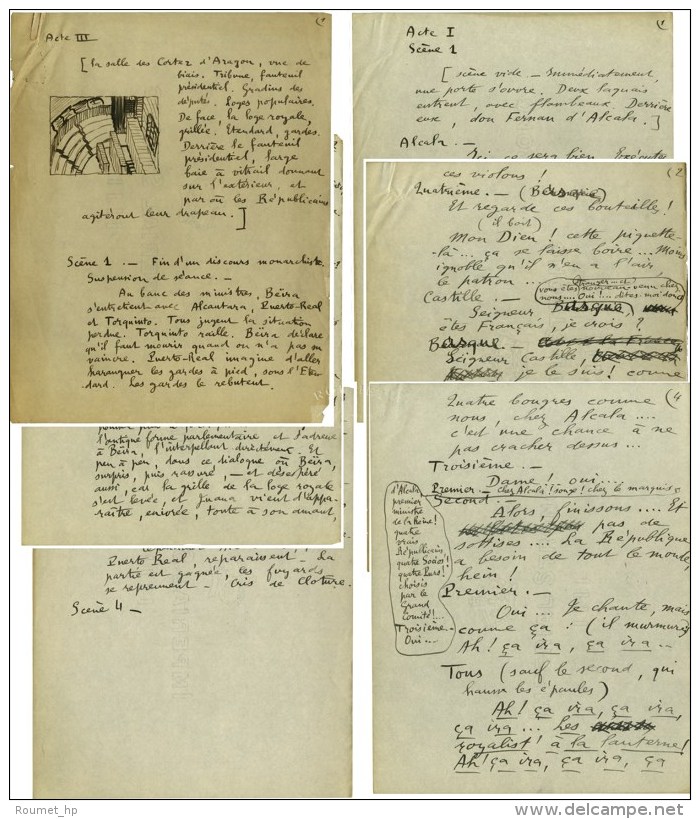 (1
Acte III
[ la salle des Cortez d'Aragon, vue de
biais. Tribune, fauteuil
présidentiel. Gradins des
députés. Loges populaires.
De face, la loge royale,
grillée. Etendard, gardes.
Derrière le fauteuil
présidentiel, large
baie à vitrail donnant
sur l'extérieur, et
par où les Républicains
agiteront leur drapeau. ]
Scène 1 . — Fin d'un discours monarchiste.
Suspension de séance. —
Au banc des ministres, Beïra
s'entretient avec Alcantara, Puerto-Real
et Torquinto. Tous jugent la situation
perdue. Torquinto raille. Beïra déclare
qu'il faut mourir quand on n'a pas su
vaincre. Puerto-Real imagine d'aller
haranguer les gardes à pied, sous l'Eten-
dard. Les gardes le rebutent.
l'antique forme parlementaire et s'adresse
à Beïra, l'interpellent directement. Et
peu à peu, dans ce dialogue où Beïra,
surpris, puis rassuré, — et désespéré
aussi, car la grille de la loge royale
s'est levée, et Juana vient d'appa-
raître, enivrée, toute à son amant,
Puerto Real, reparaissent. La
partie est gagnée, les fuyards
se reprennent — Cris de Clôture.
Scène 4 —
(1
Acte I
Scène 1
[ scène vide. — Immédiatement,
une porte s'ouvre. Deux laquais
entrent, avec flambeaux. Derrière
eux, don Fernan d'Alcala. ]
Alcala. —
Ici ce sera bien. Exécutez
(2
ces violons !
Quatrième. — (Basque)
Et regarde ces bouteilles !
(il boit)
Mon Dieu ! cette piquette-
là... ça se laisse boire... Moins
ignoble qu'il n'en a l'air,
le patron...
vous êtes nouveau-venu chez
nous.... Oui !... dites-moi donc
Castille. —
Seigneur Basque)
êtes Français, je crois ?
Basque. —
Seigneur Castille,
je le suis ! comme
(4
Quatre bougres comme
nous, chez Alcala....
c'est une chance à ne
pas cracher dessus...
Troisième. —
Dame ! oui....
Premier. — chez Alcala ! songe ! chez le marquis
d'Alcala
premier
ministre
de la Reine !
quatre
vrais
Républicains
quatre Socios !
quatre Purs !
choisis
par le
Grand
Comité !...
Troisième. —
Oui....
Second. —
Alors, finissons.... Et
pas de
sottises.... La République
a besoin de tout le monde,
hein !
Premier. —
Oui... Je chante, mais
comme ça : (il murmure)
Ah ! ça ira, ça ira...
Tous (sauf le second, qui
hausse les épaules)
Ah ! ça ira, ça ira,
ça ira... Les
royalist' à la lanterne !
Ah ! ça ira, ça ira, ça
Roumet_hp
delcampe.net